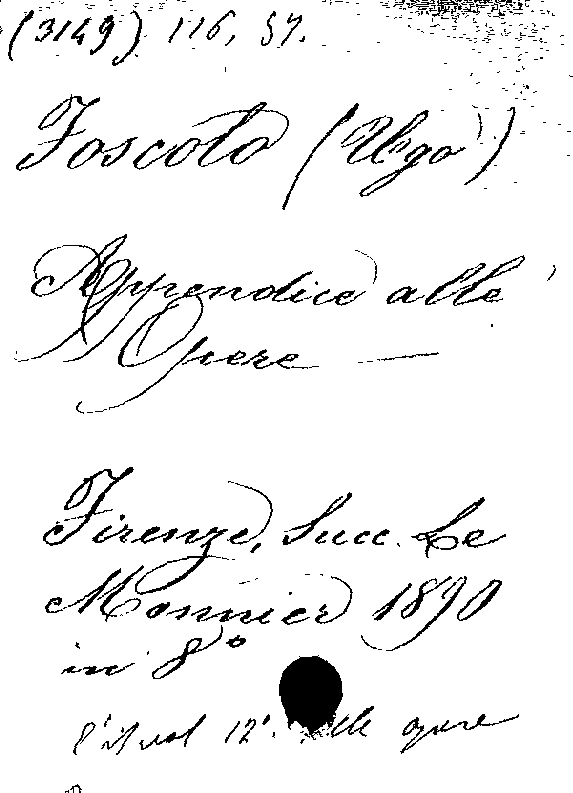 (3149) 116, 57.
Foscolo (Ugo)
Appendice alle
Opere —
Firenze, Succ. Le
Monnier 1890
in 8°
vol 12°. delle opere